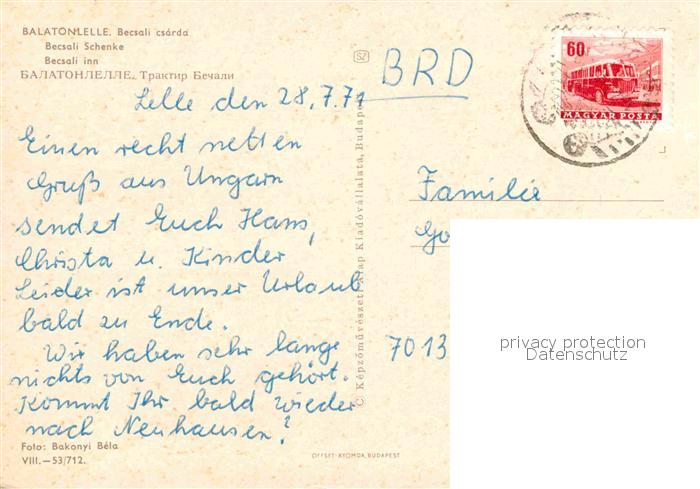 BALATONLELLE. Becsali csárda
Becsali Schenke
Becsali inn
БАЛАТОНЛЕЛЛЕ, Трактир Бечали
Lelle den 28.7.71
Einen recht netten
Gruß aus Ungarn
sendet Euch Hans,
Christa u. Kinder
Leider ist unser Urlaub
bald zu Ende.
Wir haben sehr lange
nichts von Euch gehört.
Kommt Ihr bald wieder
nach Neuhausen?
Foto: Bakonyi Béla
VIII.—53/712.
SZ
© Képzőművészeti Alap Kiadóvállalata, Budapest
OFFSET-NYOMDA, BUDAPEST
BRD
60f
MAGYAR POSTA
Familie
7013
privacy protection
Datenschutz